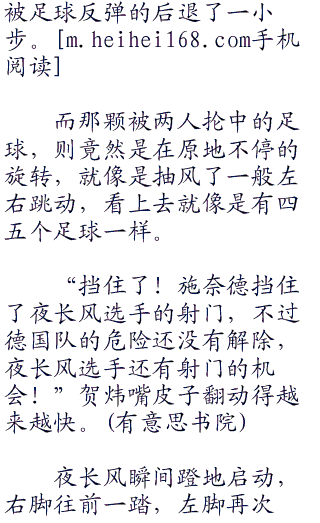 被足球反弹的后退了一小
步。[m.heihei168.com手机
阅读]
而那颗被两人抡中的足
球，则竟然是在原地不停的
旋转，就像是抽风了一般左
右跳动，看上去就像是有四
五个足球一样。
“挡住了！施奈德挡住
了夜长风选手的射门，不过
德国队的危险还没有解除，
夜长风选手还有射门的机
会！”贺炜嘴皮子翻动得越
来越快。(有意思书院)
夜长风瞬间蹬地启动，
右脚往前一踏，左脚再次